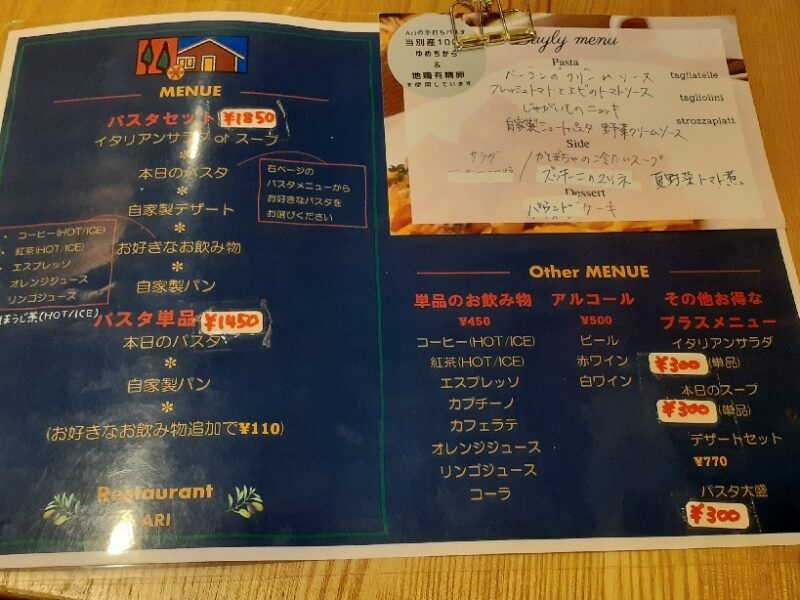 MENUE
パスタセット ¥1850
イタリアンサラダ or スープ
*
本日のパスタ
*
自家製デザート
*
お好きなお飲み物
*
自家製パン
右ページの
パスタメニューから
お好きなパスタを
お選びください
・ コーヒー(HOT/ICE)
・ 紅茶(HOT/ICE)
・ エスプレッソ
オレンジジュース
リンゴジュース
ほうじ茶(HOT/ICE)
パスタ単品 ¥1450
本日のパスタ
*
自家製パン
*
(お好きなお飲み物追加で¥110)
Restaurant
ARI
Ariの手打ちパスタ
当別産100
ゆめちから
&
地鶏有精卵
を使用しています
Dayly menu
Pasta
ベーコンのクリームソース tagliatelle
フレッシュトマトとエビのトマトソース
じゃがいものニョッキ tagliolini
自家製ショートパスタ 野菜クリームソース strozzapiatt
Side
サラダ / かぼちゃの冷たいスープ
ズッキーニのマリネ 夏野菜トマト煮。
Dessert
パウンドケーキ
Other MENUE
単品のお飲み物
¥450
コーヒー(HOT/ICE)
紅茶(HOT/ICE)
エスプレッソ
カプチーノ
カフェラテ
オレンジジュース
リンゴジュース
コーラ
アルコール
¥500
ビール
赤ワイン
白ワイン
その他お得な
プラスメニュー
イタリアンサラダ
¥300(単品)
本日のスープ
¥300(単品)
デザートセット
¥770
パスタ大盛
¥300